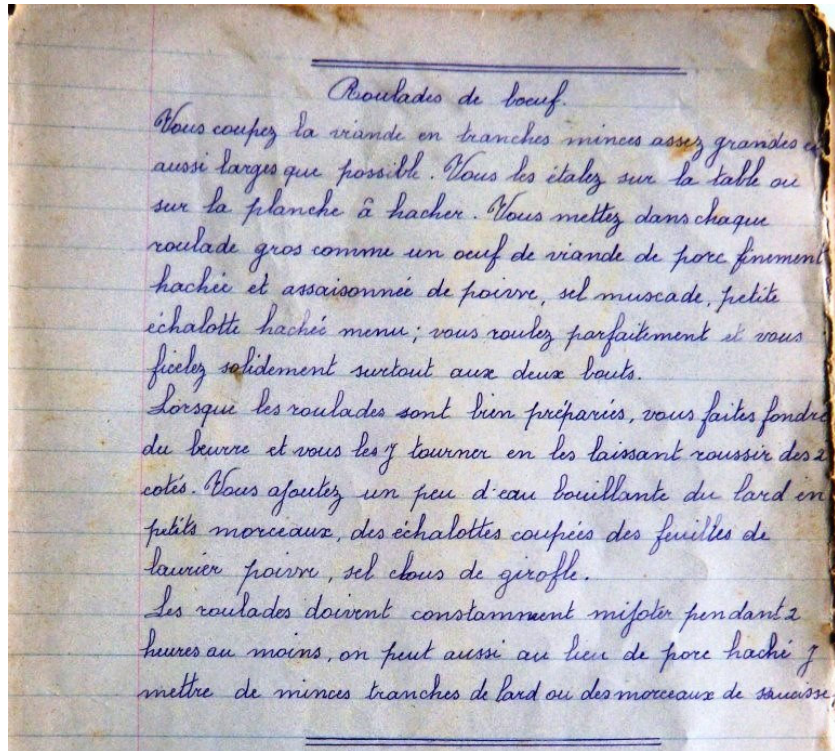 Roulades de boeuf.
Vous coupez la viande en tranches minces assez grandes et
aussi larges que possible. Vous les étalez sur la table ou
sur la planche à hacher. Vous mettez dans chaque
roulade gros comme un oeuf de viande de porc finement
hachée et assaisonnée de poivre, sel muscade, petite
échalotte hachée menu; vous roulez parfaitement et vous
ficelez solidement surtout aux deux bouts.
Lorsque les roulades sont bien préparées, vous faites fondre
du beurre et vous les y tourner en les laissant roussir des 2
cotés. Vous ajoutez un peu d'eau bouillante du lard en
petits morceaux, des échalottes coupées des feuilles de
laurier poivre, sel clous de girofle.
Les roulades doivent constamment mijoter pendant 2
heures au moins, on peut aussi au lieu de porc haché y
mettre de minces tranches de lard ou des morceaux de saucisse.